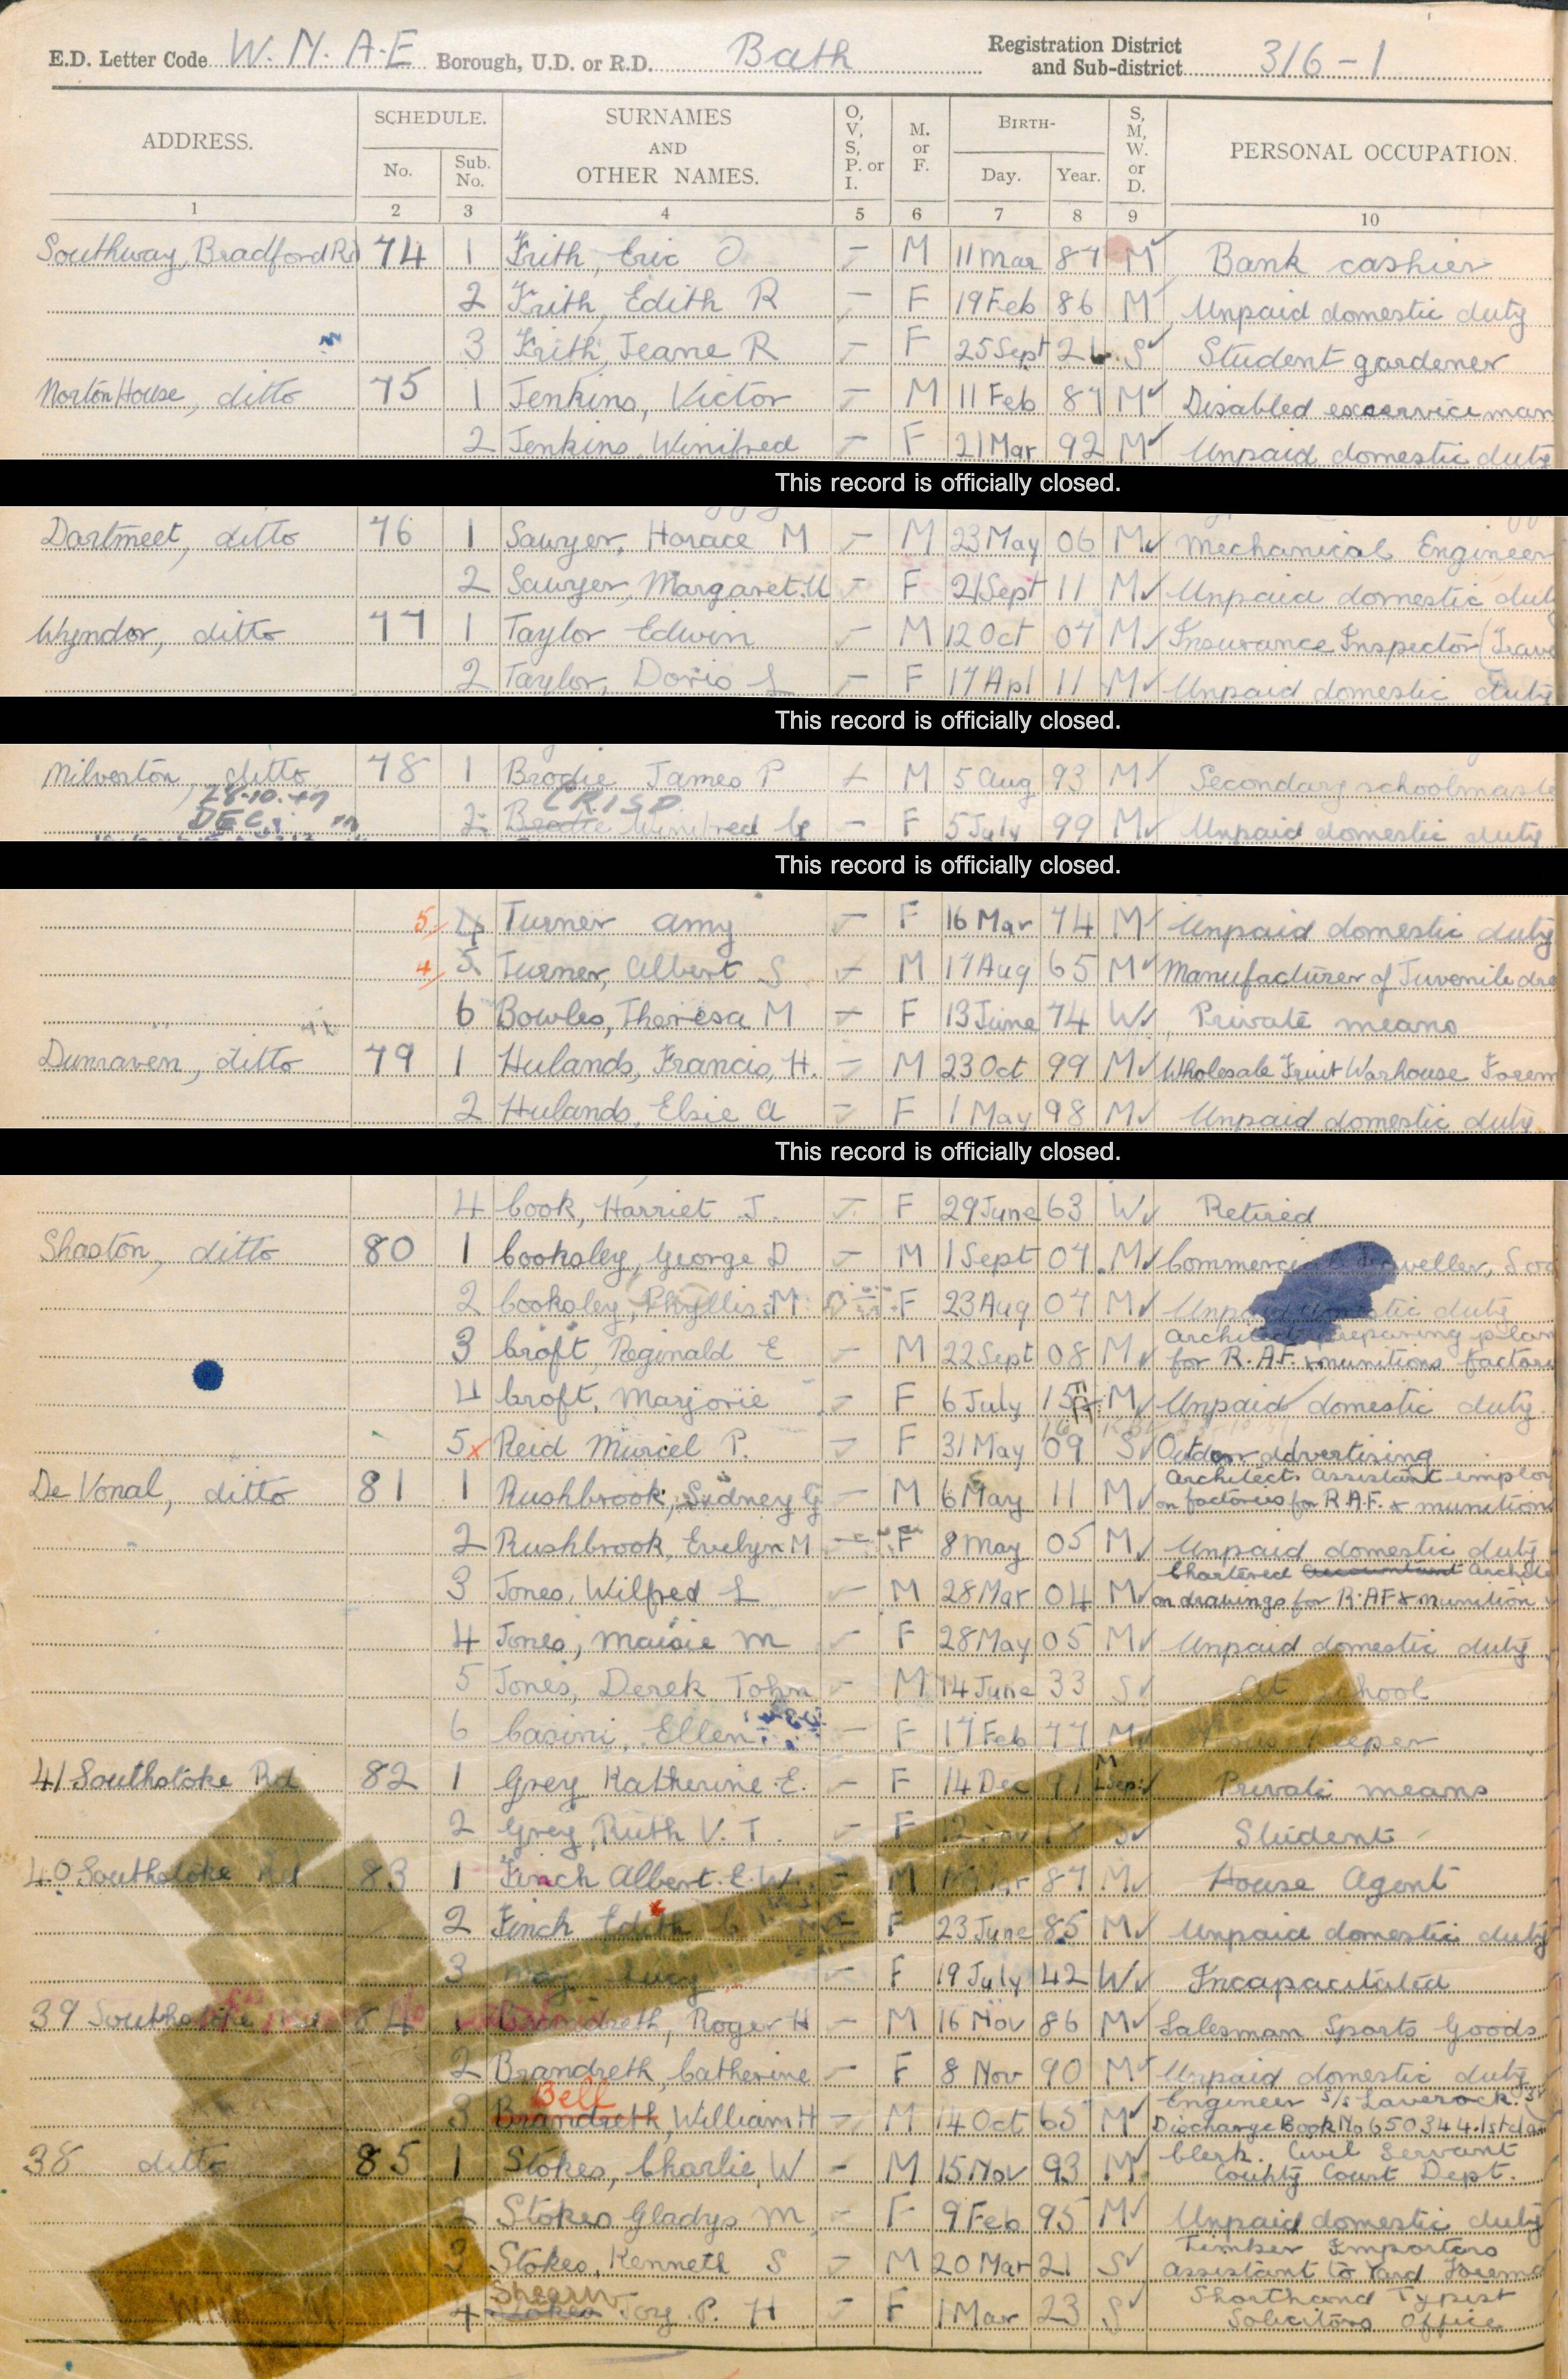 E.D. Letter Code W. M. A-E Borough, U.D. or R.D. Bath Registration District and Sub-district 316-1
ADDRESS. SCHEDULE. No. Sub. No. SURNAMES AND OTHER NAMES. O, V, S, P. or I. M. or F. BIRTH- Day. Year. S, M, W. or D. PERSONAL OCCUPATION.
1 2 3 4 5 6 7 8 9 10
Southway, Bradford Rd 74 1 Frith, Eric O. – M 11 Mar 87 M Bank cashier
2 Frith, Edith R – F 19 Feb 86 M Unpaid domestic duty
3 Frith, Jeane R – F 25 Sept 21 S Student gardener
Norton House, ditto 75 1 Jenkins, Victor – M 11 Feb 87 M Disabled exservice man
2 Jenkins, Winifred – F 21 Mar 92 M Unpaid domestic duty
This record is officially closed.
Dartmeet, ditto 76 1 Sawyer, Horace M – M 23 May 06 M Mechanical Engineer
2 Sawyer, Margaret. U – F 21 Sept 11 M Unpaid domestic duty
Wyndor, ditto 77 1 Taylor Edwin – M 12 Oct 07 M Insurance Inspector (Trave
2 Taylor, Doris L – F 17 Apl 11 M Unpaid domestic duty
This record is officially closed.
Milverton, ditto 78 1 Brodie James P – M 5 Aug 93 M Secondary schoolmaste
28.10.47 CRISP
DEC. 2 Brodie Winifred G – F 5 July 99 M Unpaid domestic duty
This record is officially closed.
5 4 Turner Amy – F 16 Mar 74 M Unpaid domestic duty
4 5 Turner, Albert S – M 17 Aug 65 M Manufacturer of Juvenile dre
6 Bowles, Theresa M – F 13 June 74 W Private means
Dunraven, ditto 79 1 Hulands, Francis, H. – M 23 Oct 99 M Wholesale Fruit Warhouse Forem
2 Hulands, Elsie A – F 1 May 98 M Unpaid domestic duty
This record is officially closed.
4 Cook, Harriet J. – F 29 June 63 W Retired
Shaston, ditto 80 1 Cooksley, George D – M 1 Sept 07 M Commercial Traveller,
2 Cooksley, Phyllis M – F 23 Aug 07 M Unpaid domestic duty
3 Croft, Reginald E – M 22 Sept 08 M Architect preparing plan
for R.A.F. & munitions factori
4 Croft, Marjorie – F 6 July 15 M Unpaid domestic duty.
16
5 x Reid Muriel P. – F 31 May 09 S Outdoor advertising
De Vonal, ditto 81 1 Rushbrook, Sydney G – M 6 May 11 M Architects assistant employ
on factories for R.A.F. & munition
2 Rushbrook, Evelyn M – F 8 May 05 M Unpaid domestic duty
3 Jones, Wilfred L – M 28 Mar 04 M Chartered Accountant Archite
on drawings for R.A.F & munition
4 Jones, Maisie M – F 28 May 05 M Unpaid domestic duty
5 Jones, Derek John – M 14 June 33 S At school
6 Casini, Ellen – F 17 Feb 77 M Housekeeper
41 Southstoke Rd 82 1 Grey Katherine. E. – F 14 Dec 91 M Private means
2 Grey, Ruth V. T. – F 12 18 S Student
40 Southstoke Rd 83 1 Finch Albert. E. W. – M 87 M House Agent
2 Finch Edith C – F 23 June 85 M Unpaid domestic duty
3 Lucy – F 19 July 42 W Incapacitated
39 Southstoke Rd 84 1 Brandreth, Roger H – M 16 Nov 86 M Salesman Sports Goods
2 Brandreth, Catherine – F 8 Nov 90 M Unpaid domestic duty
Bell
3 Brandreth, William H – M 14 Oct 65 M Engineer S/S Laverock.
Discharge Book No 650344. 1st cla
38 ditto 85 1 Stokes, Charlie, W – M 15 Nov 93 M Clerk. Civil Servant
County Court Dept.
2 Stokes Gladys M – F 9 Feb 95 M Unpaid domestic duty
3 Stokes, Kenneth S – M 20 Mar 21 S Timber Importers
assistant to Yard Forema
4 Stokes Joy. P. H – F 1 Mar 23 S Shorthand Typist
Solicitors Office